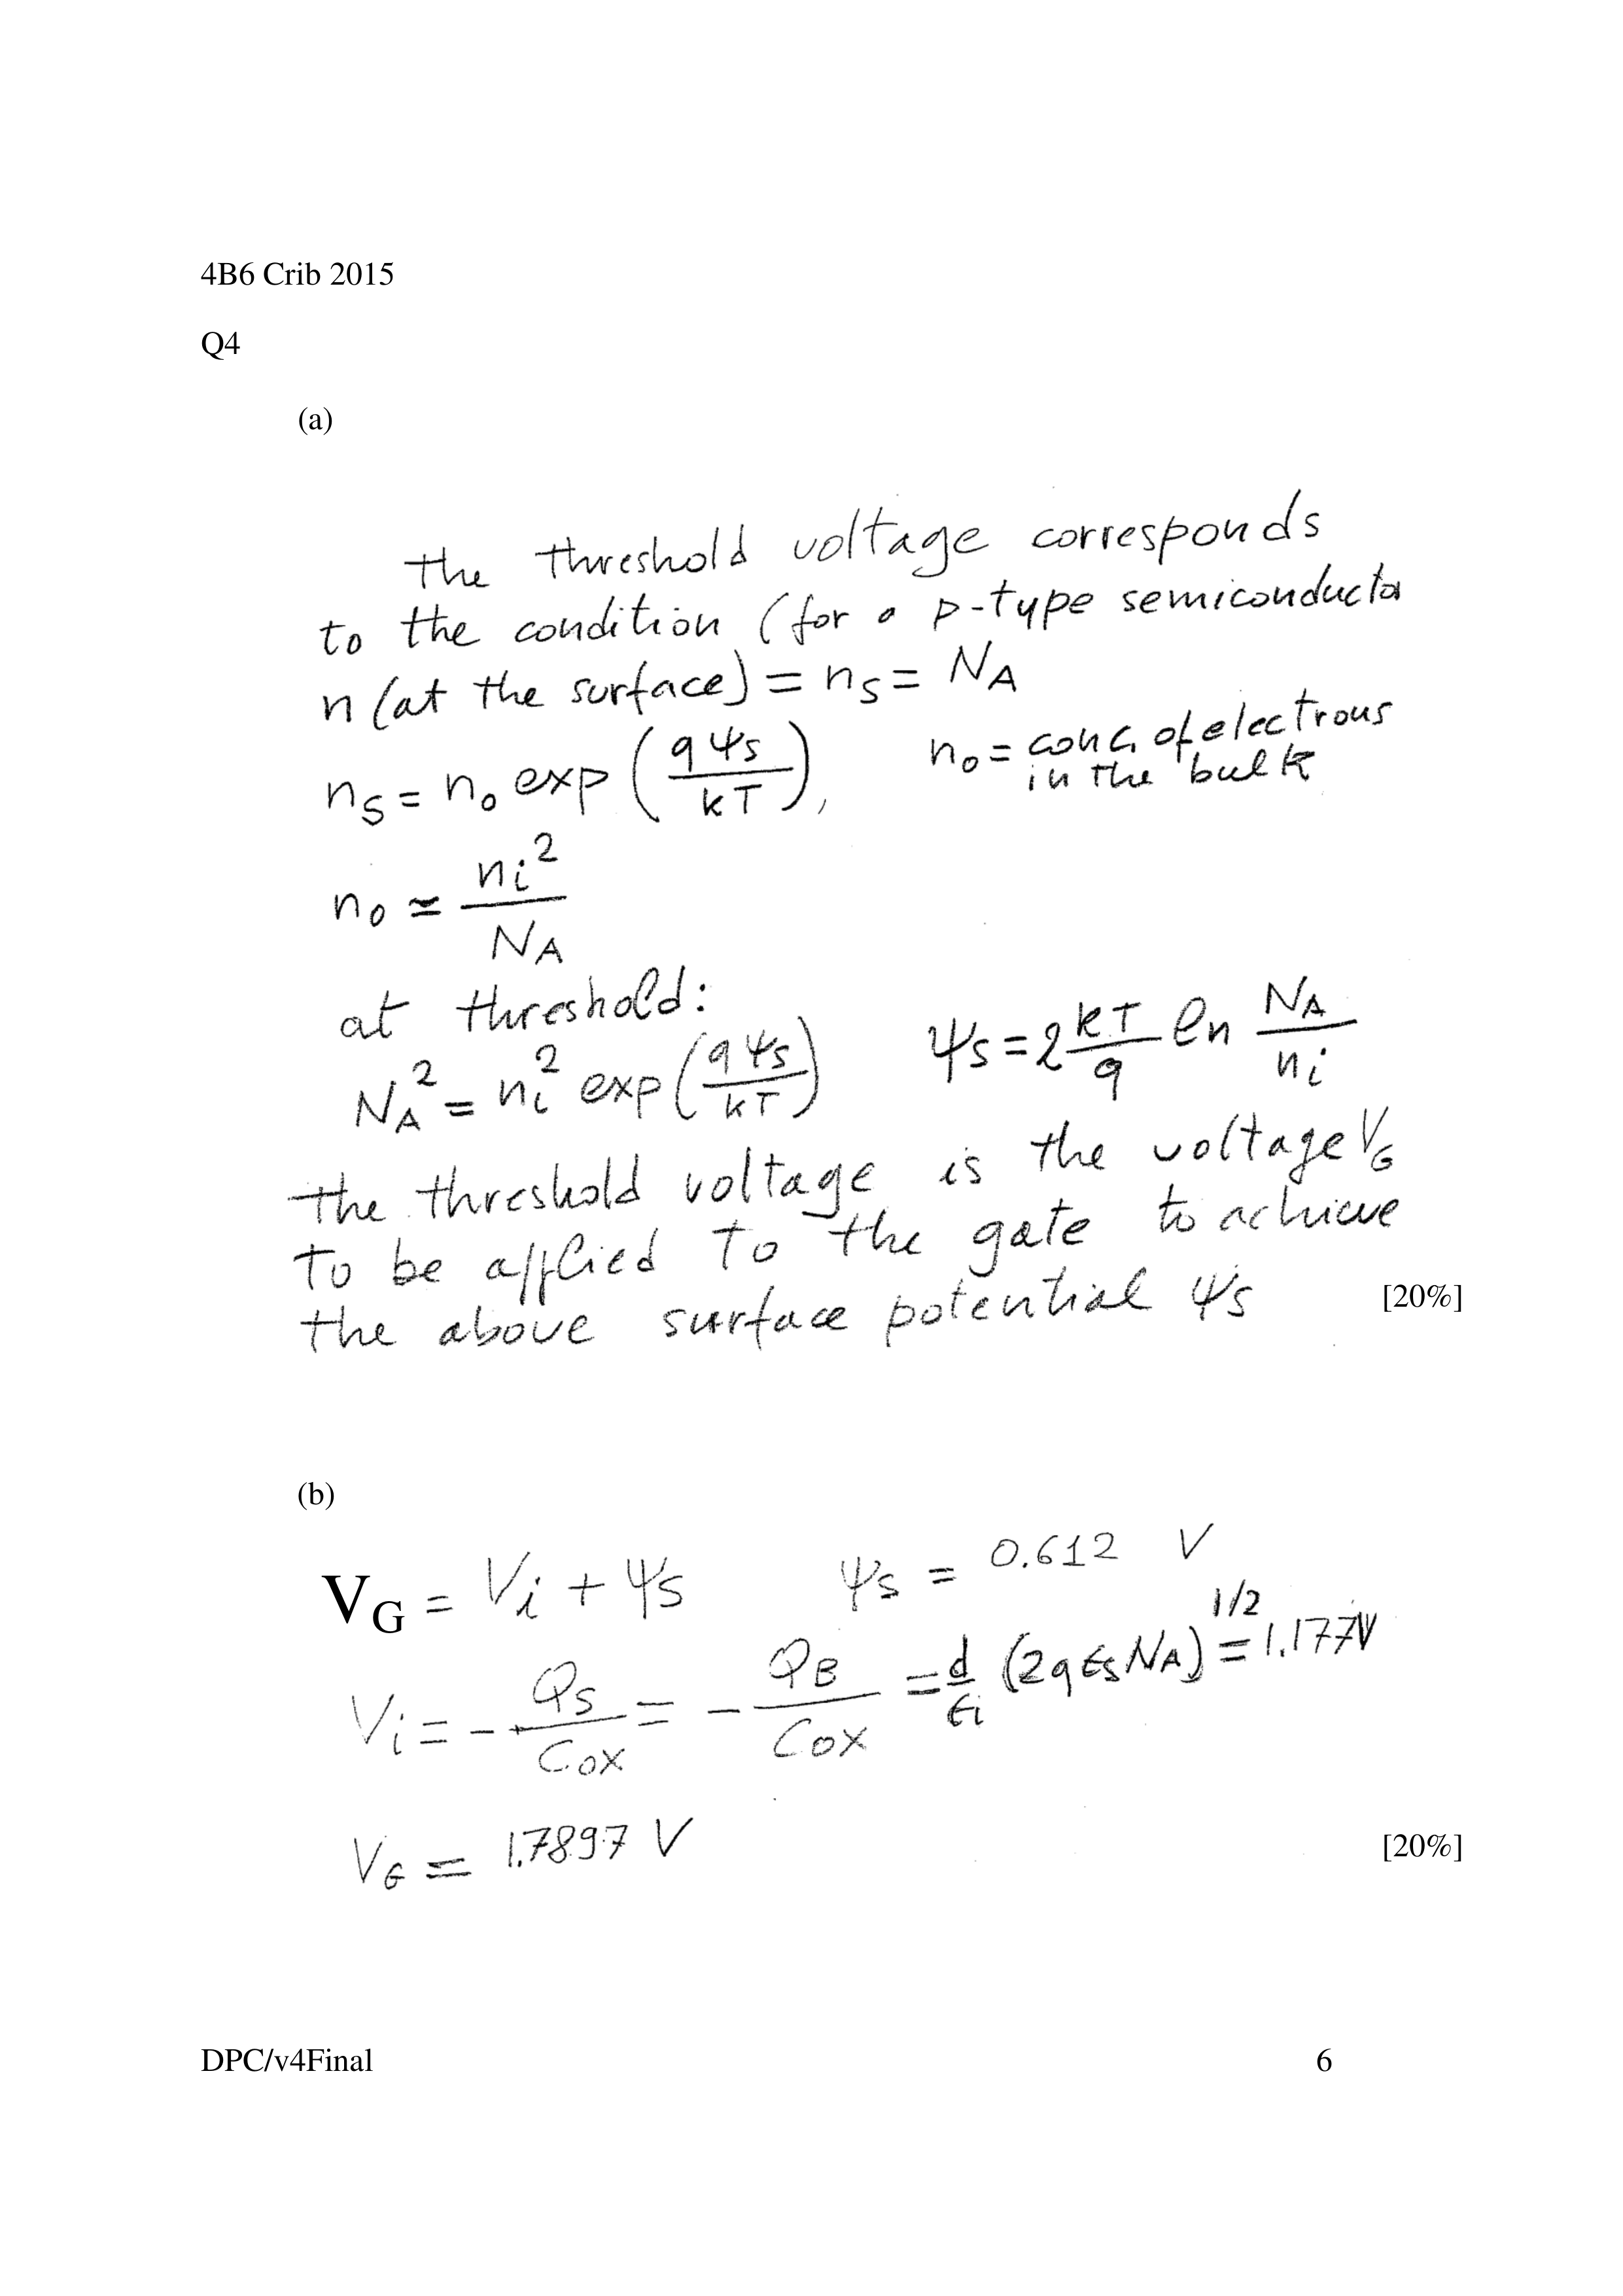 4B6 Crib 2015
Q4
(a)
the threshold voltage corresponds
to the condition (for a p-type semiconducto
n (at the surface) = nS = NA
nS = no exp (qψs/kT), no = conc. of electrons in the bulk
no ≃ ni²/NA
at threshold:
NA² = ni² exp (qψs/kT) ψs = 2 kT/q ln NA/ni
the threshold voltage is the voltage VG
to be applied to the gate to achieve
the above surface potential ψs [20%]
(b)
VG = Vi + ψs ψs = 0.612 V
Vi = - Qs/Cox = - QB/Cox = d/εi (2qεsNA)^1/2 = 1.177V
VG = 1.7897 V [20%]
DPC/v4Final 6